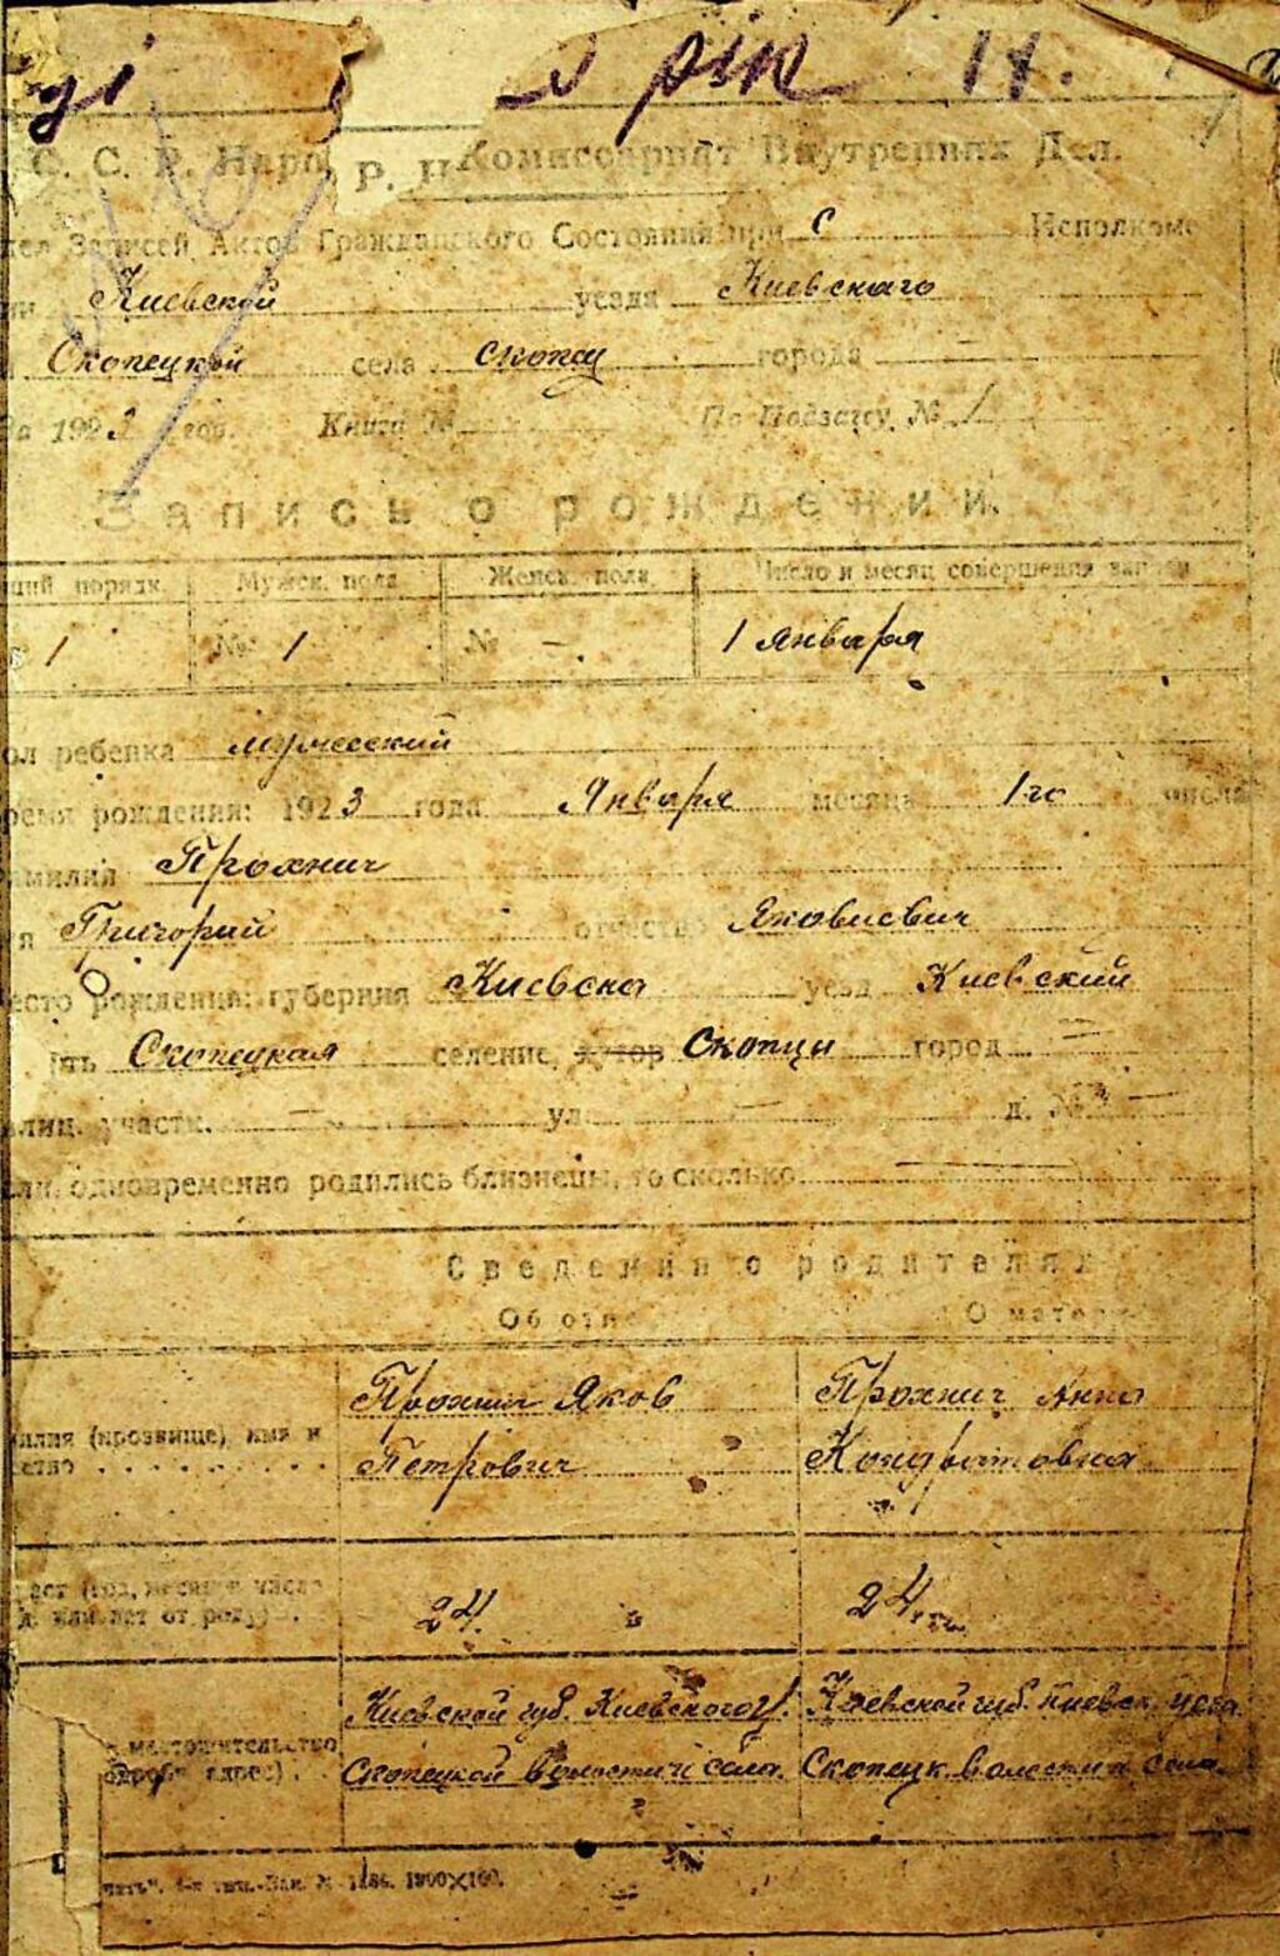 рік 14.
С. С. Р. Наро Р. Н Комиссариат Внутренних Дел.
тел Записей Актов Гражданского Состояния при С Исполкоме
Киевской уезда Киевскаго
Скопецкой села Скопцы города —
за 1923 год. Книга № По Подзагсу № 1
Запись о рождении.
щий порядк. Мужск. пола Женск. пола Число и месяц совершения записи
№ 1 № 1 № —. 1 января
ол ребенка мужеский
ремя рождения: 1923 года Января месяца 1го числа
амилия Прохнич
я Григорий отчество Яковлевич
есто рождения: губерния Киевска уезд Киевский
ть Скопецкая селение, хутор Скопцы город —
лиц. участк. — ул. — д. № —
ли одновременно родились близнецы, то сколько —
Сведения о родителях
Об отце О матери
Прохнич Яков Прохнич Анна
илия (прозвище) имя и
ство Петрович Кондратовна
аст (год, месяц и число
д. или лет от роду) 24 24
Киевской губ. Киевского у. Киевской губ. Киевск. уезд.
местожительство
(подроб. адрес) Скопецкой волости и села. Скопецк. волости и села.
1900×100.